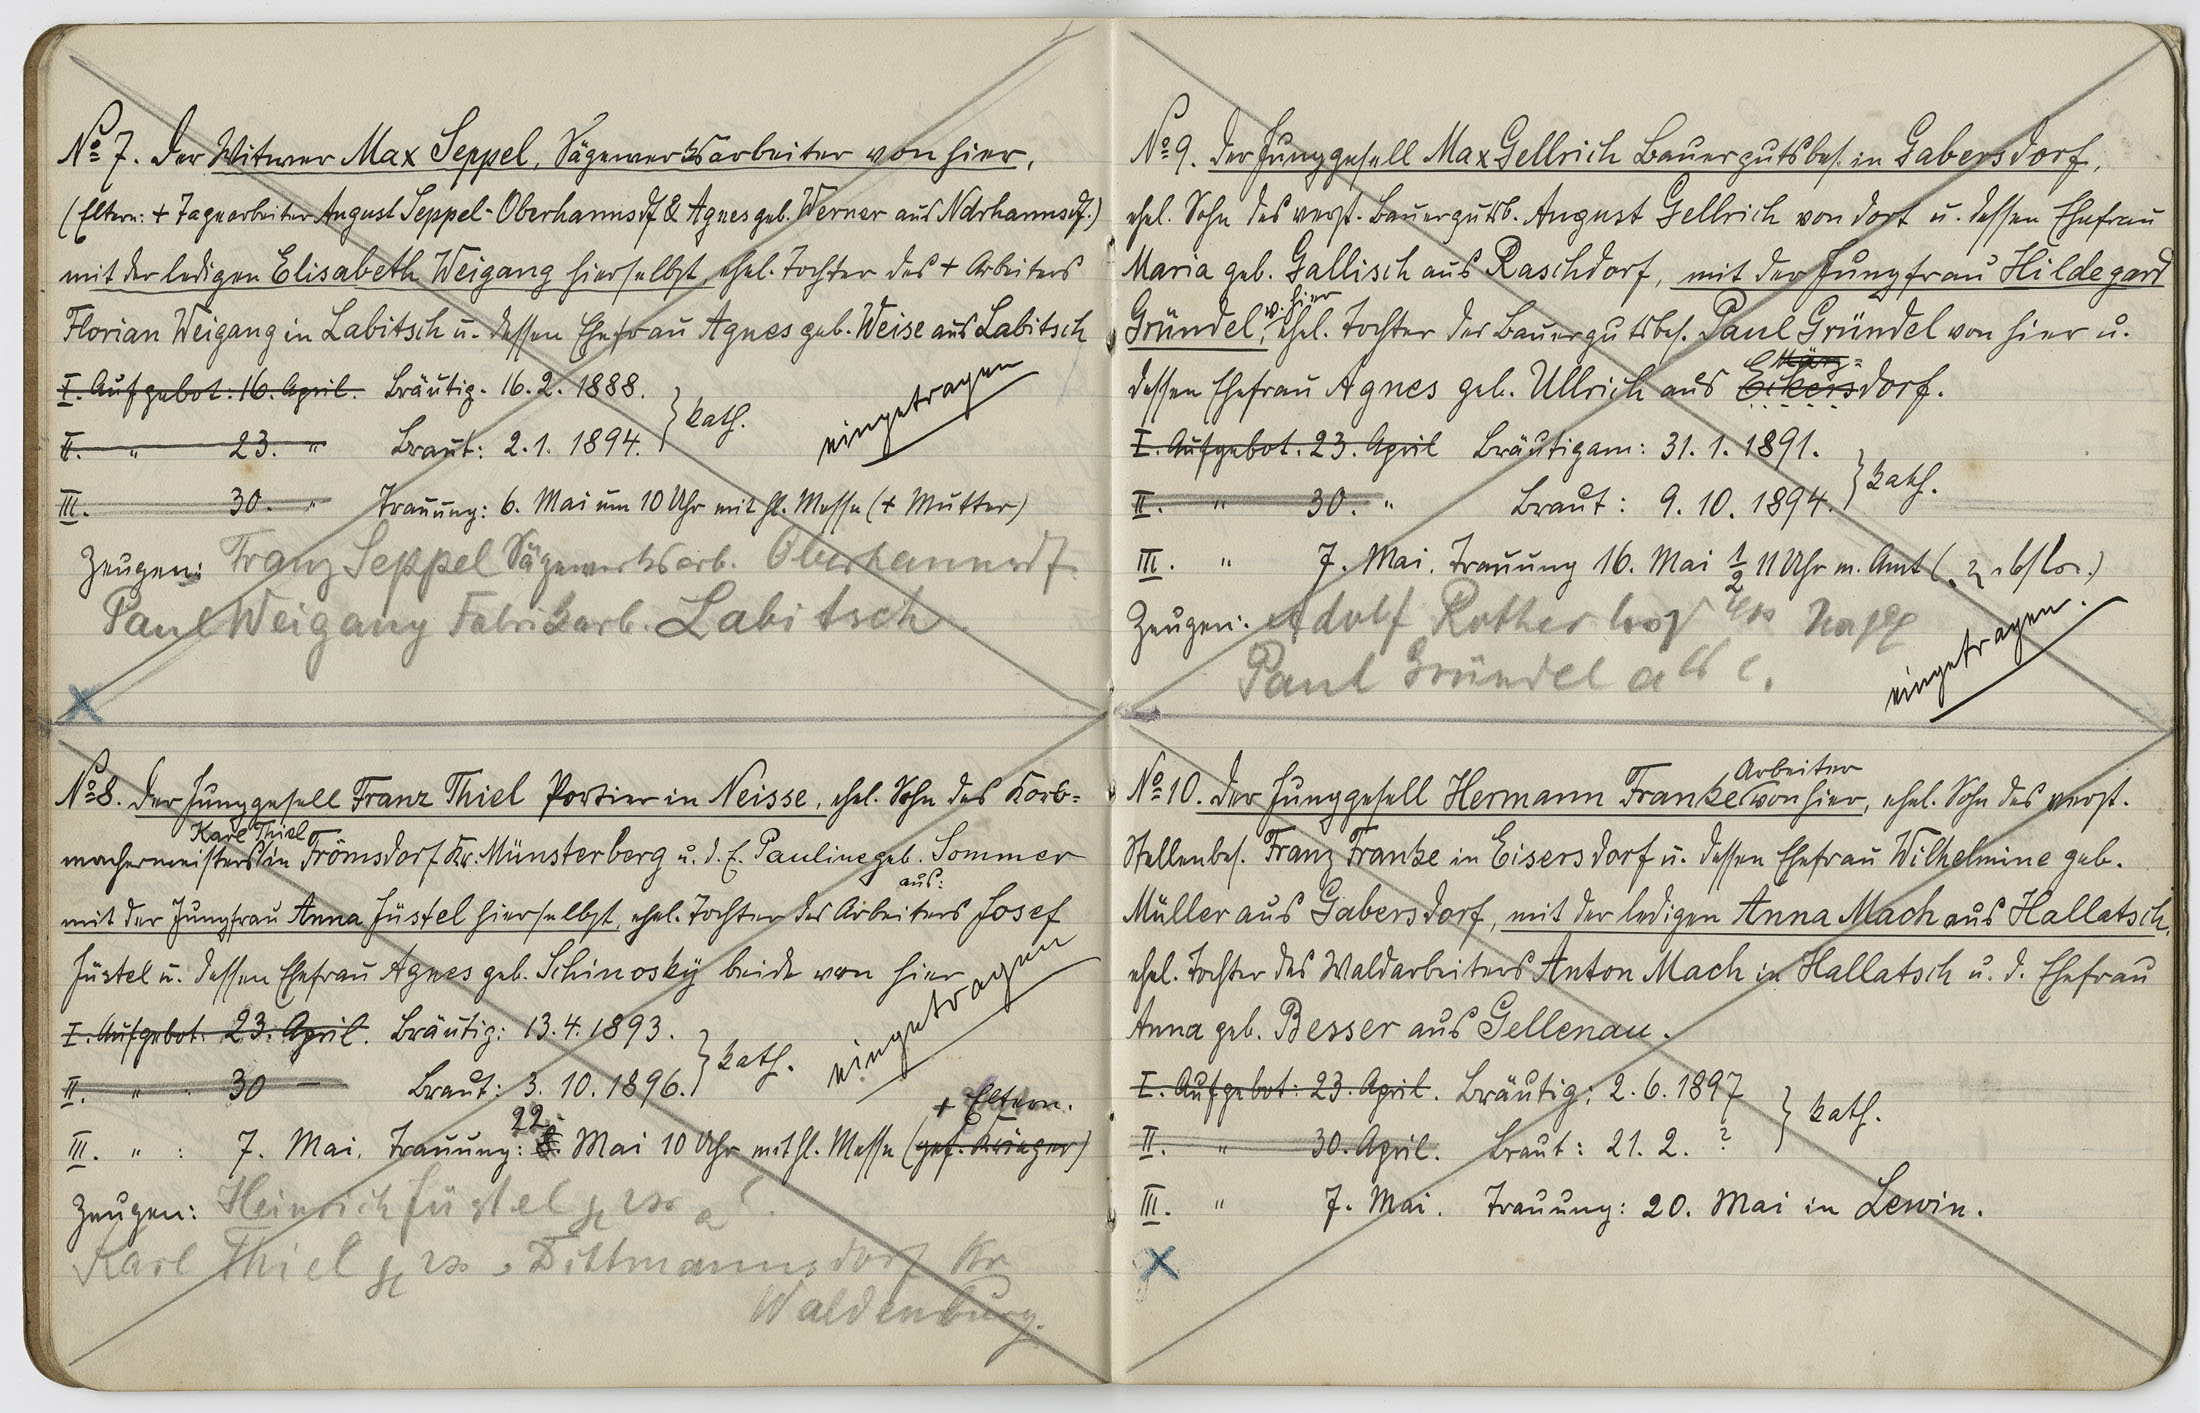 No 7. Der Witwer Max Seppel, Sägewerksarbeiter von hier,
(Eltern: + Tagearbeiter August Seppel-Oberhannsdf & Agnes geb. Werner aus Ndrhannsdf.)
mit der ledigen Elisabeth Weigang hierselbst, ehel. Tochter des + Arbeiters
Florian Weigang in Labitsch u. dessen Ehefrau Agnes geb. Weise aus Labitsch
I. Aufgebot: 16. April. Bräutig. 16. 2. 1888.
II. " 23. " Braut: 2. 1. 1894. } kath.
eingetragen
III. 30. " Trauung: 6. Mai um 10 Uhr mit hl. Messe (+ Mutter)
Zeugen: Franz Seppel Sägewerksarb. Oberhannsdf.
Paul Weigang Fabrikarb. Labitsch.
X
No 8. Der Junggesell Franz Thiel Portier in Neisse, ehel. Sohn des Korb-
Karl Thiel
machermeisters in Frömsdorf Kr. Münsterberg u. d. E. Pauline geb. Sommer
aus:
mit der Jungfrau Anna Jüstel hierselbst, ehel. Tochter des Arbeiters Josef
Jüstel u. dessen Ehefrau Agnes geb. Schinosky beide von hier
eingetragen
I. Aufgebot: 23. April. Bräutig: 13. 4. 1893.
II. " 30 — Braut: 3. 10. 1896. } kath.
22. + Eltern.
III. " : 7. Mai. Trauung: 8. Mai 10 Uhr mit hl. Messe (gef. Krieger)
Zeugen: Heinrich Jüstel
Karl Thiel Dittmannsdorf Kr
Waldenburg.
No 9. Der Junggesell Max Gellrich Bauergutsbes. in Gabersdorf,
ehel. Sohn des verst. Bauergutsb. August Gellrich von dort u. dessen Ehefrau
Maria geb. Gallisch aus Raschdorf, mit der Jungfrau Hildegard
v. hier
Gründel, ehel. Tochter des Bauergutsbes. Paul Gründel von hier u.
dessen Ehefrau Agnes geb. Ullrich aus Eckersdorf.
I. Aufgebot: 23. April Bräutigam: 31. 1. 1891.
II. " 30. " Braut: 9. 10. 1894. } kath.
III. " 7. Mai. Trauung 16. Mai 1/2 11 Uhr m. Amt
Zeugen: Adolf Rother
Paul Gründel
eingetragen.
Arbeiter
No 10. Der Junggesell Hermann Franke von hier, ehel. Sohn des verst.
Stellenbes. Franz Franke in Eisersdorf u. dessen Ehefrau Wilhelmine geb.
Müller aus Gabersdorf, mit der ledigen Anna Mach aus Hallatsch,
ehel. Tochter des Waldarbeiters Anton Mach in Hallatsch u. d. Ehefrau
Anna geb. Besser aus Gellenau.
I. Aufgebot: 23. April. Bräutig: 2. 6. 1897
II. " 30. April. Braut: 21. 2. ? } kath.
III. " 7. Mai. Trauung: 20. Mai in Lewin.
X